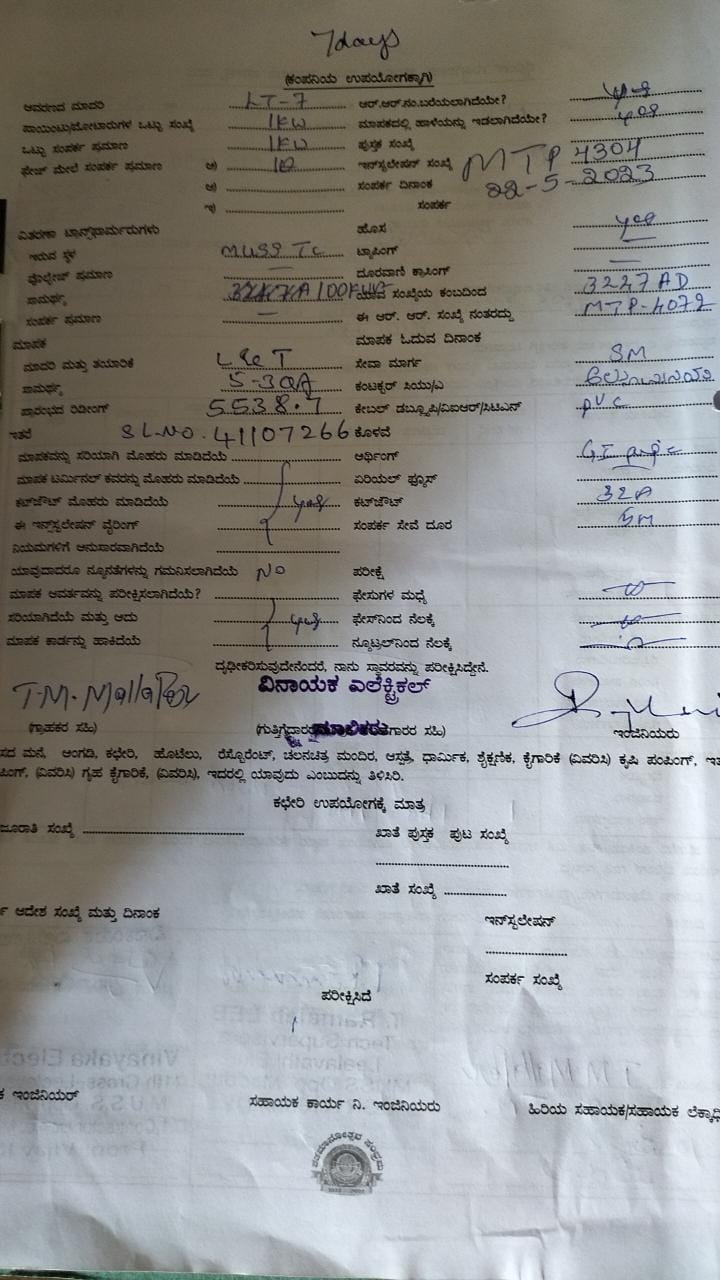 7days
(ಕಂಪನಿಯ ಉಪಯೋಗಕ್ಕಾಗಿ)
ಆವರಣದ ಮಾದರಿ LT-7 ಆರ್.ಆರ್.ನಂ.ಬರೆಯಲಾಗಿದೆಯೇ? yes
ಪಾಯಿಂಟು/ಮೋಟಾರುಗಳ ಒಟ್ಟು ಸಂಖ್ಯೆ 1KW ಮಾಪಕದಲ್ಲಿ ಹಾಳೆಯನ್ನು ಇಡಲಾಗಿದೆಯೇ? yes
ಒಟ್ಟು ಸಂಪರ್ಕ ಪ್ರಮಾಣ 1KW ಪುಸ್ತಕ ಸಂಖ್ಯೆ
ಫೇಜ್ ಮೇಲೆ ಸಂಪರ್ಕ ಪ್ರಮಾಣ ಅ) ಇನ್‌ಸ್ಟಲೇಷನ್ ಸಂಖ್ಯೆ MTP 4304
ಆ) ಸಂಪರ್ಕ ದಿನಾಂಕ 22-5-2023
ಇ) ಸಂಪರ್ಕ
ವಿತರಣಾ ಟ್ರಾನ್ಸ್‌ಫಾರ್ಮರುಗಳು ಹೊಸ yes
ಇರುವ ಸ್ಥಳ MUSS TC ಟ್ಯಾಪಿಂಗ್
ವೋಲ್ಟೇಜ್ ಪ್ರಮಾಣ ದೂರವಾಣಿ ಕ್ರಾಸಿಂಗ್
ಸಾಮರ್ಥ್ಯ ಯಾವ ಸಂಖ್ಯೆಯ ಕಂಬದಿಂದ 3227 AD
ಸಂಪರ್ಕ ಪ್ರಮಾಣ ಈ ಆರ್. ಆರ್. ಸಂಖ್ಯೆ ನಂತರದ್ದು MTP-4072
ಮಾಪಕ ಮಾಪಕ ಓದುವ ದಿನಾಂಕ
ಮಾದರಿ ಮತ್ತು ತಯಾರಿಕೆ L&T ಸೇವಾ ಮಾರ್ಗ SM
ಸಾಮರ್ಥ್ಯ 5-30A ಕಂಟಕ್ಟರ್ ಸಿಯು/ಎ
ಪ್ರಾರಂಭದ ರಿಡಿಂಗ್ 5538.7 ಕೇಬಲ್ ಡಬ್ಲ್ಯೂಪಿ/ವಿಐಆರ್/ಸಿಟಿಎಸ್ PVC
ಇತರೆ SL.NO. 41107266 ಕೊಳವೆ
ಮಾಪಕವನ್ನು ಸರಿಯಾಗಿ ಮೊಹರು ಮಾಡಿದೆಯೆ ಅರ್ಥಿಂಗ್ GI pipe
ಮಾಪಕ ಟರ್ಮಿನಲ್ ಕವರನ್ನು ಮೊಹರು ಮಾಡಿದೆಯೆ ಏರಿಯಲ್ ಫ್ಯೂಸ್
ಕಟ್‌ಔಟ್ ಮೊಹರು ಮಾಡಿದೆಯೆ yes ಕಟ್‌ಔಟ್ 32A
ಈ ಇನ್‌ಸ್ಟಲೇಷನ್ ವೈರಿಂಗ್ ಸಂಪರ್ಕ ಸೇವೆ ದೂರ 5M
ನಿಯಮಗಳಿಗೆ ಅನುಸಾರವಾಗಿದೆಯೆ
ಯಾವುದಾದರೂ ನ್ಯೂನತೆಗಳನ್ನು ಗಮನಿಸಲಾಗಿದೆಯೆ NO ಪರೀಕ್ಷೆ
ಮಾಪಕ ಆವರ್ತವನ್ನು ಪರೀಕ್ಷಿಸಲಾಗಿದೆಯೆ? ಫೇಸುಗಳ ಮಧ್ಯೆ
ಸರಿಯಾಗಿದೆಯೆ ಮತ್ತು ಅದು yes ಫೇಸ್‌ನಿಂದ ನೆಲಕ್ಕೆ
ಮಾಪಕ ಕಾರ್ಡನ್ನು ಹಾಕಿದೆಯೆ ನ್ಯೂಟ್ರಲ್‌ನಿಂದ ನೆಲಕ್ಕೆ
ದೃಢೀಕರಿಸುವುದೇನೆಂದರೆ, ನಾನು ಸ್ಥಾವರವನ್ನು ಪರೀಕ್ಷಿಸಿದ್ದೇನೆ.
ವಿನಾಯಕ ಎಲೆಕ್ಟ್ರಿಕಲ್
(ಗ್ರಾಹಕರ ಸಹಿ) ಇಂಜಿನಿಯರು
ಸದ ಮನೆ, ಅಂಗಡಿ, ಕಛೇರಿ, ಹೊಟೆಲು, ರೆಸ್ಟೊರೆಂಟ್, ಚಲನಚಿತ್ರ ಮಂದಿರ, ಆಸ್ಪತ್ರೆ, ಧಾರ್ಮಿಕ, ಶೈಕ್ಷಣಿಕ, ಕೈಗಾರಿಕೆ (ವಿವರಿಸಿ) ಕೃಷಿ ಪಂಪಿಂಗ್,
ಪಿಂಗ್, (ವಿವರಿಸಿ) ಗೃಹ ಕೈಗಾರಿಕೆ, (ವಿವರಿಸಿ), ಇದರಲ್ಲಿ ಯಾವುದು ಎಂಬುದನ್ನು ತಿಳಿಸಿರಿ.
ಕಛೇರಿ ಉಪಯೋಗಕ್ಕೆ ಮಾತ್ರ
ಜೂರಾತಿ ಸಂಖ್ಯೆ ಖಾತೆ ಪುಸ್ತಕ ಪುಟ ಸಂಖ್ಯೆ
ಖಾತೆ ಸಂಖ್ಯೆ
ಆದೇಶ ಸಂಖ್ಯೆ ಮತ್ತು ದಿನಾಂಕ
ಇನ್‌ಸ್ಟಲೇಷನ್
ಸಂಪರ್ಕ ಸಂಖ್ಯೆ
ಪರೀಕ್ಷಿಸಿದೆ
ಇಂಜಿನಿಯರ್ ಸಹಾಯಕ ಕಾರ್ಯ ನಿ. ಇಂಜಿನಿಯರು ಹಿರಿಯ ಸಹಾಯಕ/ಸಹಾಯಕ